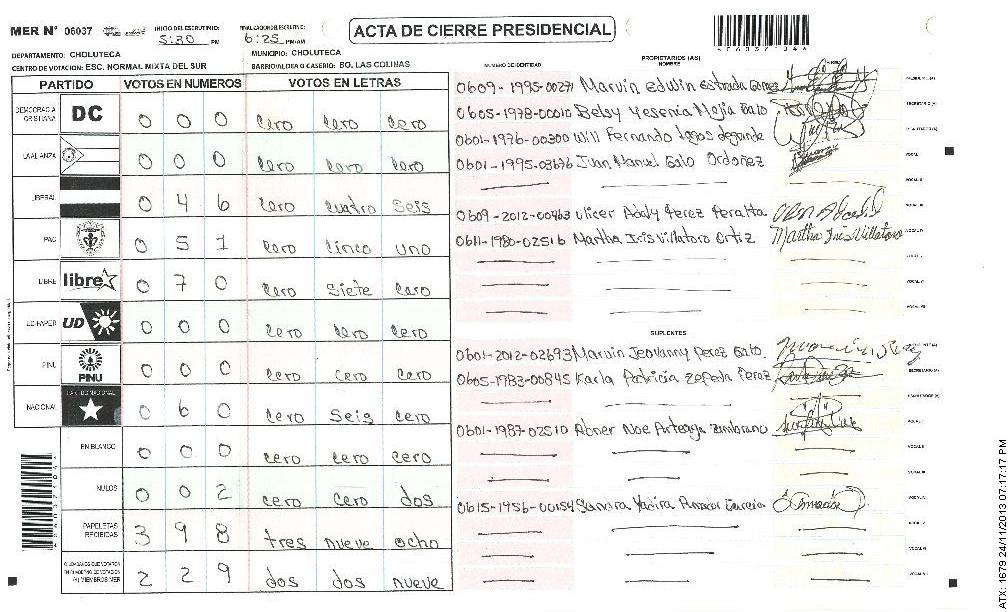 MER N° 06037
INICIO DEL ESCRUTINIO: 5:30 PM
FINALIZACION DEL ESCRUTINIO: 6:25 PM/AM
ACTA DE CIERRE PRESIDENCIAL
DEPARTAMENTO: CHOLUTECA
MUNICIPIO: CHOLUTECA
CENTRO DE VOTACION: ESC. NORMAL MIXTA DEL SUR
BARRIO/ALDEA O CASERIO: BO. LAS COLINAS
PARTIDO VOTOS EN NUMEROS VOTOS EN LETRAS
DEMOCRACIA CRISTIANA DC 0 0 0 cero cero cero
LA ALIANZA 0 0 0 cero cero cero
LIBERAL 0 4 6 cero cuatro seis
PAC 0 5 1 cero cinco uno
LIBRE libre 0 7 0 cero siete cero
UD-FAPER UD 0 0 0 cero cero cero
PINU PINU 0 0 0 cero cero cero
NACIONAL PARTIDO NACIONAL 0 6 0 cero seis cero
EN BLANCO 0 0 0 cero cero cero
NULOS 0 0 2 cero cero dos
PAPELETAS RECIBIDAS 3 9 8 tres nueve ocho
CIUDADANOS QUE VOTARON EN CUADERNO DE VOTACION (A) MIEMBROS MER 2 2 9 dos dos nueve
NUMERO DE IDENTIDAD
PROPIETARIOS (AS)
NOMBRE
0609-1995-00271 Marvin edwin estrada Gomez
0605-1978-00010 Belsy Yesenia Mejia Gato
0601-1976-00300 Will Fernando lagos
0601-1995-03676 Juan Manuel Gato Ordoñez
0609-2012-00463 Ulicer Adaly Perez Peralta
0611-1980-02516 Martha Iris Villatoro Ortiz Martha Iris Villatoro
SUPLENTES
0601-2012-02693 Marvin Jeovanny Perez Gato.
0605-1983-00845 Karla Patricia Zepeda Perez
0601-1987-02510 Abner Noe Arteaga Zambrano
0615-1956-00154 Sandra Yadira
ATX: 1679 24/11/2013 07:17:17 PM